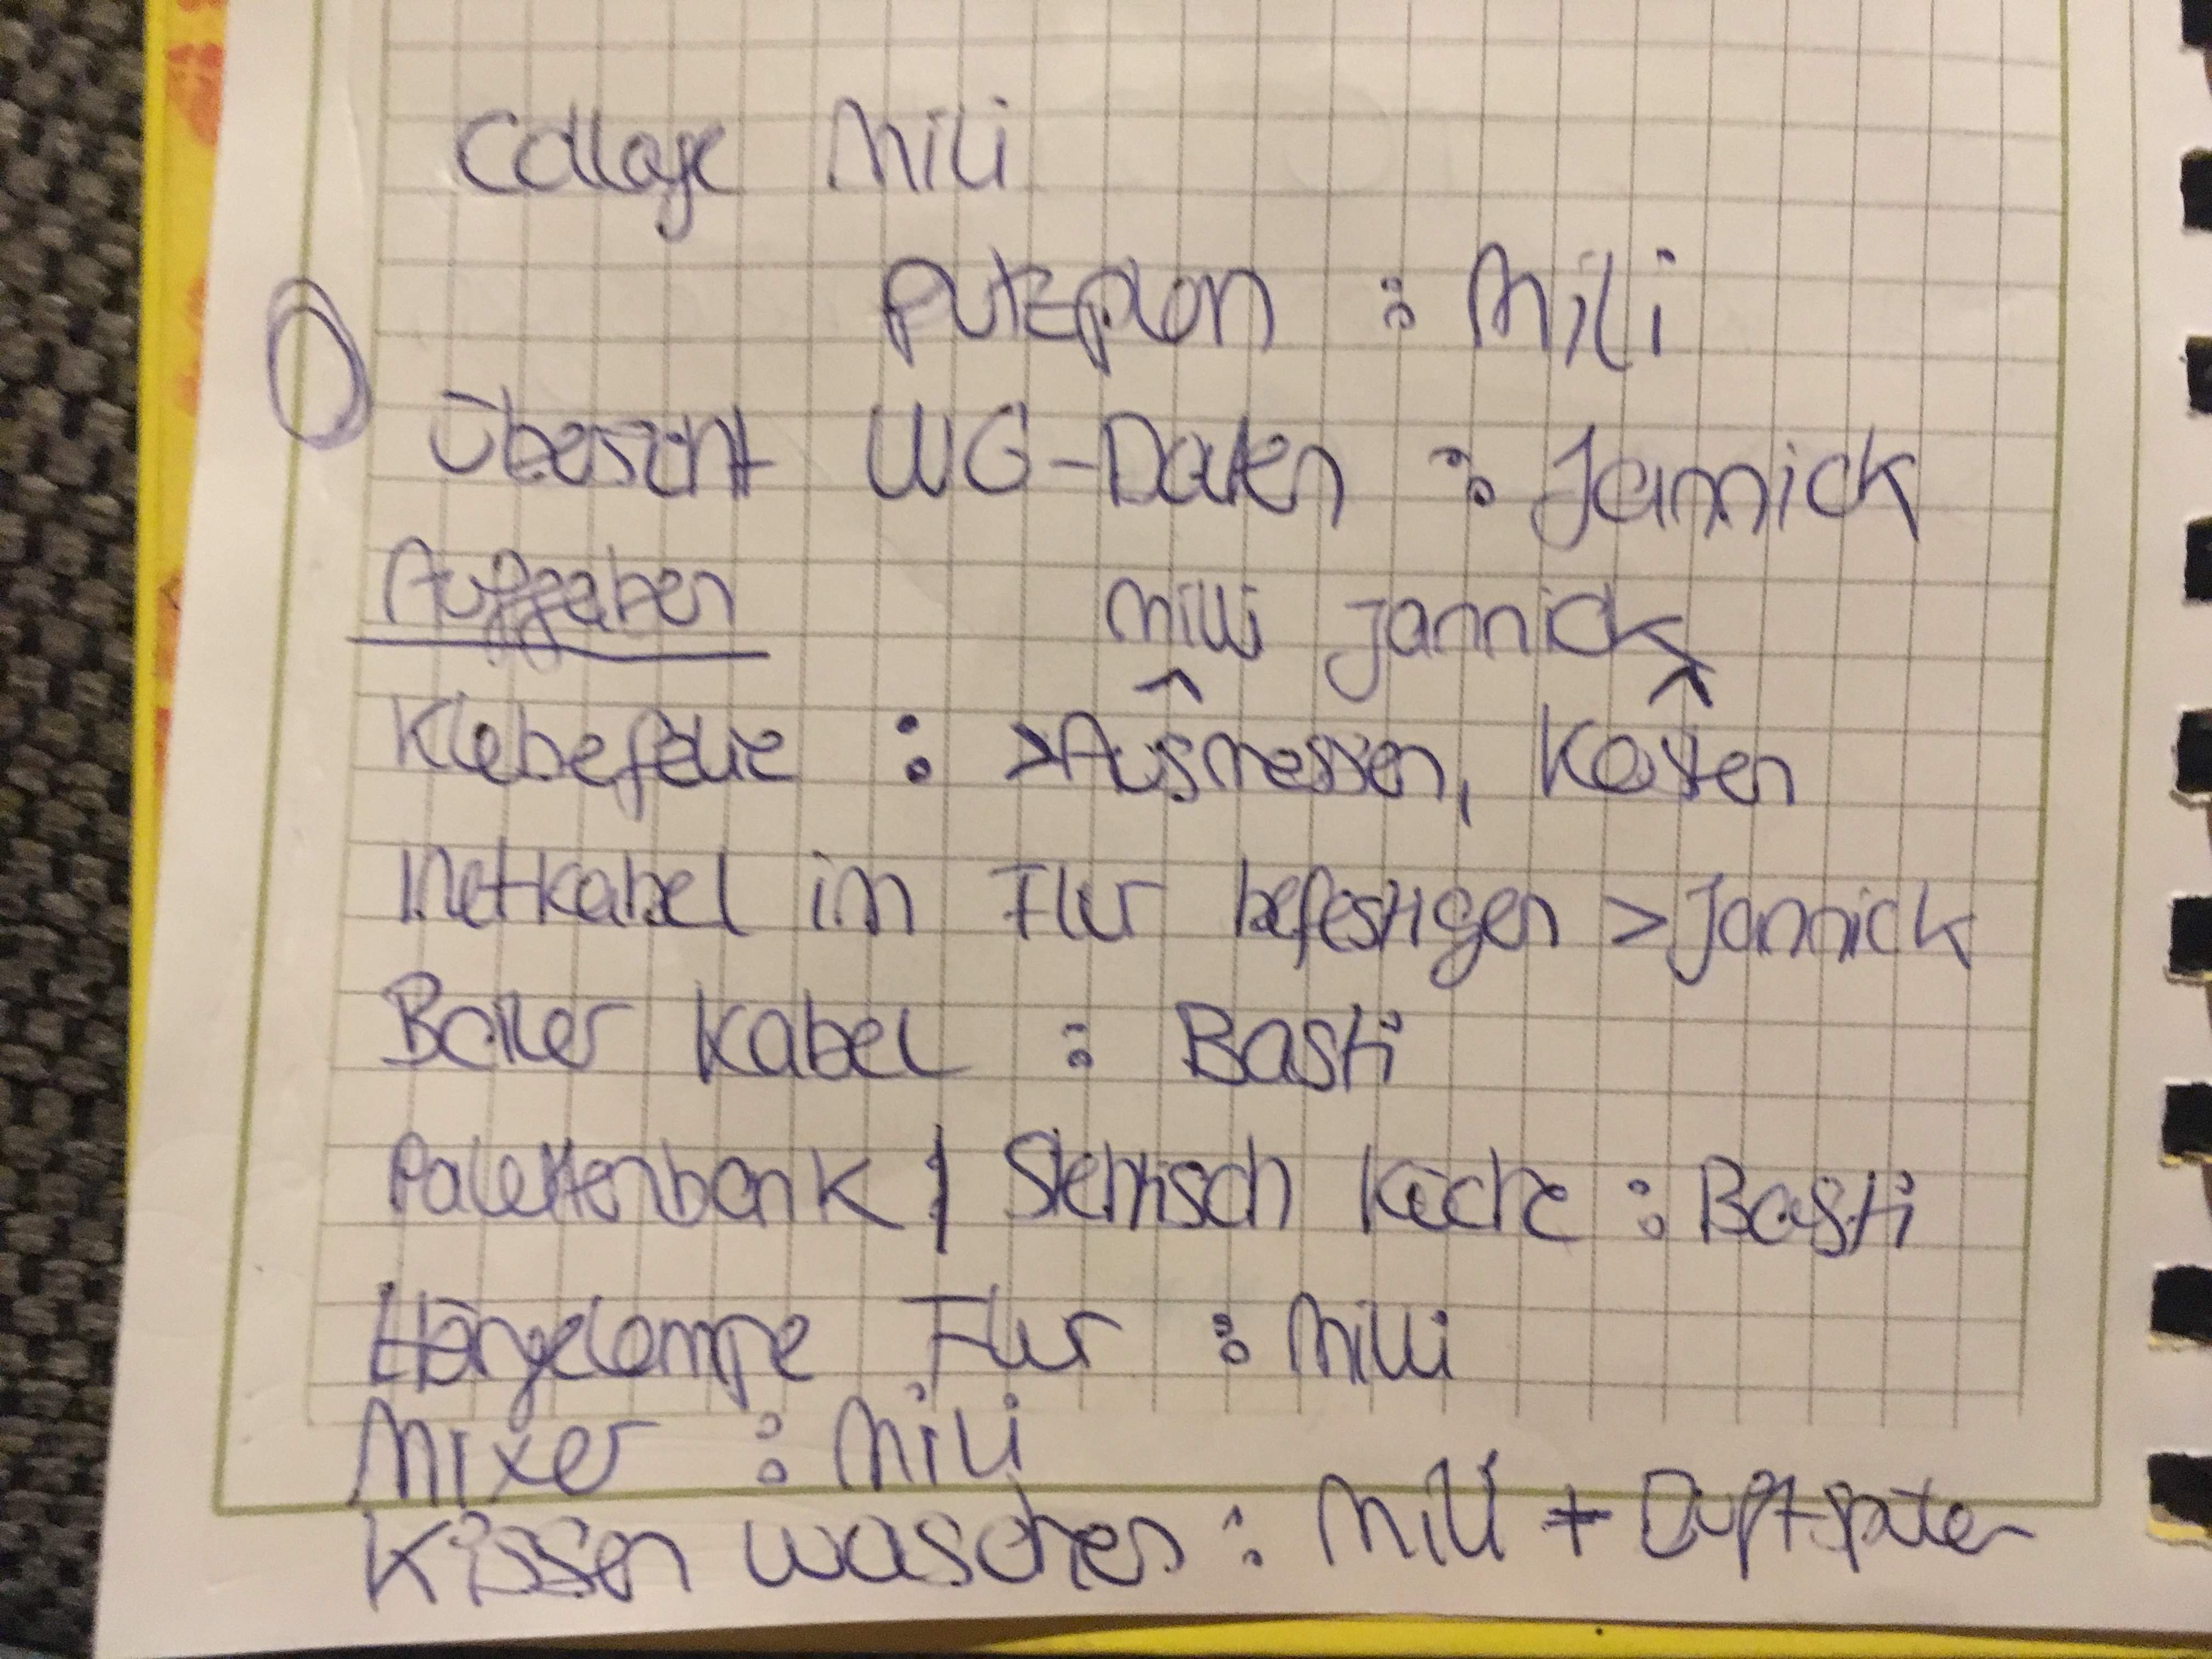 Collage Mili
Putzplan : Mili
Übersicht WG-Daten : Jannick
Aufgaben
Milli Jannick
Klebefolie : >Ausmessen, Kosten
Inetkabel im Flur befestigen > Jannick
Boiler Kabel : Basti
Palettenbank | Stehtisch Küche : Basti
Hängelampe Flur : Milli
Mixer : Mili
Kissen waschen : Milli +